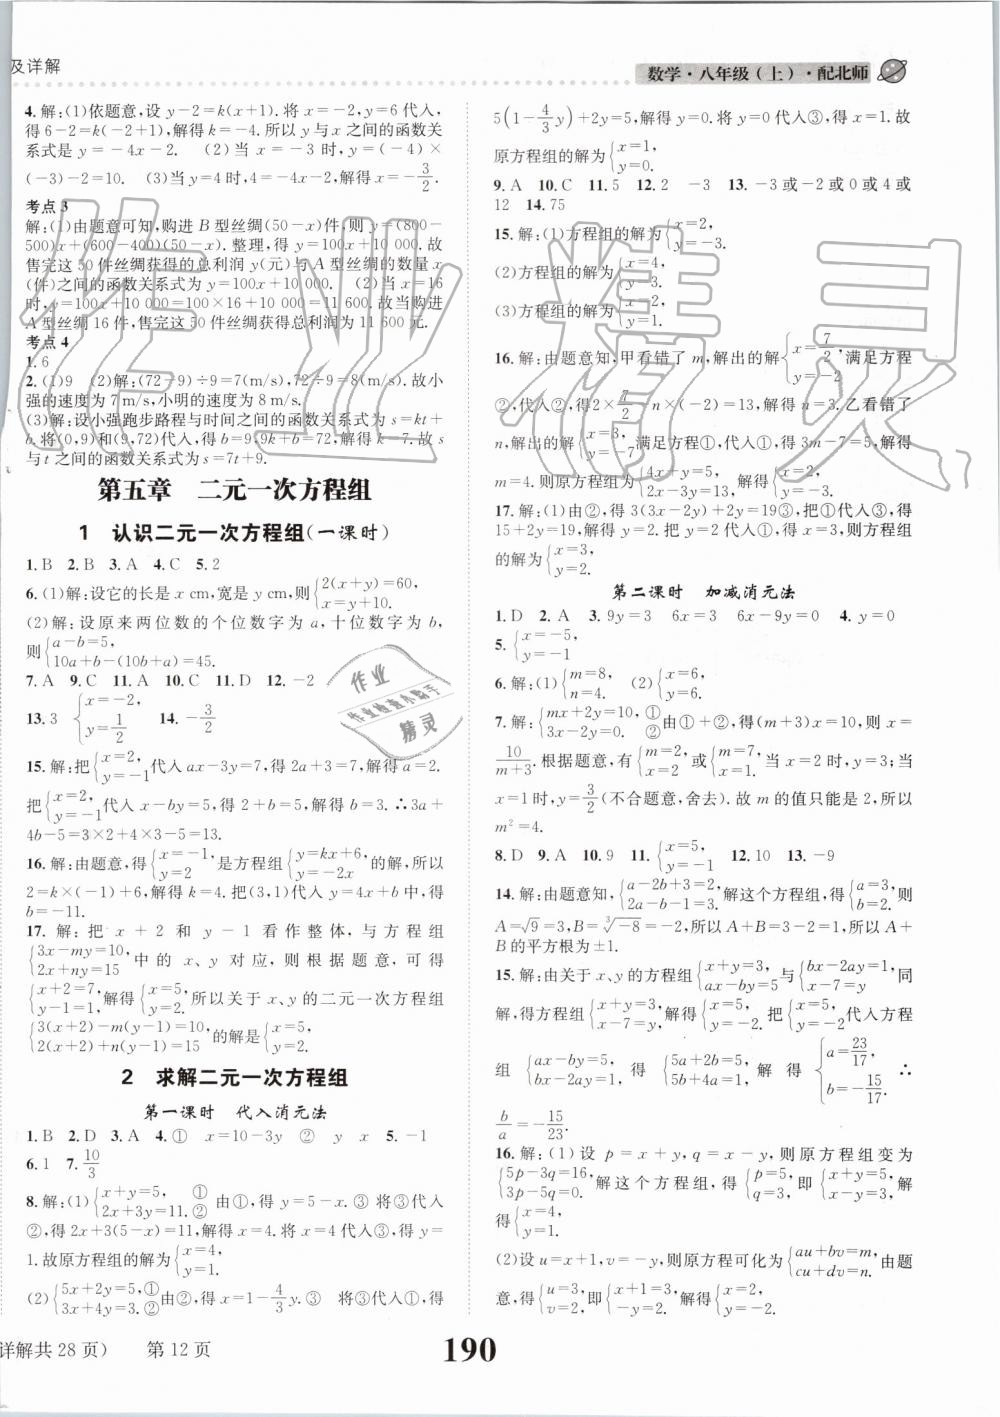 及详解
数学·八年级(上)·配北师
4.解:(1)依题意,设 y-2=k(x+1).将 x=-2,y=6代入,
得 6-2=k(-2+1),解得 k=-4.所以 y与 x 之间的函数关
系式是 y=-4x-2. (2)当 x=-3 时,y=(-4)×
(-3)-2=10. (3)当 y=4时,4=-4x-2,解得 x=-3/2.
考点 3
解:(1)由题意可知,购进 B 型丝绸(50-x)件,则 y=(800-
500)x+(600-400)(50-x).整理,得 y=100x+10 000.故
售完这50件丝绸获得的总利润 y(元)与A型丝绸的数量 x
(件)之间的函数关系式为 y=100x+10 000. (2)当 x=16
时,y=100x+10 000=100×16+10 000=11 600.故当购进
A型丝绸 16 件,售完这 50 件丝绸获得总利润为 11 600元.
考点 4
1.6
2.(1)9 (2)解:(72-9)÷9=7(m/s),72÷9=8(m/s).故小
强的速度为 7m/s,小明的速度为 8m/s.
(3)解:设小强跑步路程与时间之间的函数关系式为 s=kt+
b.将(0,9)和(9,72)代入,得 b=9,9k+b=72,解得 k=7.故 s
与t 之间的函数关系式为 s=7t+9.
第五章 二元一次方程组
1 认识二元一次方程组(一课时)
1.B 2.B 3.A 4.C 5.2
6.(1)解:设它的长是 x cm,宽是 y cm,则{2(x+y)=60, x=y+10.
(2)解:设原来两位数的个位数字为 a,十位数字为 b,
则{a-b=5, 10a+b-(10b+a)=45.
7.A 9.C 11.A 10.C 11.D 12.-2
13.3 {x=-2, y=1/2 14.-3/2
15.解:把{x=2, y=-1代入 ax-3y=7,得 2a+3=7,解得 a=2.
把{x=2, y=-1代入 x-by=5,得 2+b=5,解得 b=3.∴3a+
4b-5=3×2+4×3-5=13.
16.解:由题意,得{x=-1, y=2是方程组{y=kx+6, y=-2x的解,所以
2=k×(-1)+6,解得 k=4.把(3,1)代入 y=4x+b 中,得
b=-11.
17.解:把 x+2 和 y-1 看作整体,与方程组
{3x-my=10, 2x+ny=15 中的 x、y 对应,则根据题意,可得
{x+2=7, y-1=1,解得{x=5, y=2.所以关于 x、y的二元一次方程组
{3(x+2)-m(y-1)=10, 2(x+2)+n(y-1)=15的解是{x=5, y=2.
2 求解二元一次方程组
第一课时 代入消元法
1.B 2.D 3.A 4.① x=10-3y ② y x 5.-1
6.1 7.10/3
8.解:(1){x+y=5, ① 2x+3y=11.② 由①,得 y=5-x.③ 将③代入
②,得 2x+3(5-x)=11,解得 x=4.将 x=4 代入③,得 y=
1.故原方程组的解为{x=4, y=1.
(2){5x+2y=5,① 3x+4y=3.②由②,得 x=1-4/3y.③ 将③代入①,得
5(1-4/3y)+2y=5,解得 y=0.将 y=0代入③,得 x=1.故
原方程组的解为{x=1, y=0.
9.A 10.C 11.5 12.2 -3 13.-3或-2或0或4或
12 14.75
15.解:(1)方程组的解为{x=2, y=-3.
(2)方程组的解为{x=4, y=3.
(3)方程组的解为{x=2, y=1.
16.解:由题意知,甲看错了 m,解出的解{x=7/2, y=-2满足方程
②,代入②,得2×7/2-n×(-2)=13,解得 n=3.乙看错了
n,解出的解{x=3, y=-7满足方程①,代入①,得 3m-7=5,解得
m=4.则原方程组为{4x+y=5, 2x-3y=13,解得{x=2, y=-3.
17.解:(1)由②,得 3(3x-2y)+2y=19③,把①代入③,得
15+2y=19,解得 y=2.把 y=2代入①,得 x=3,则方程组
的解为{x=3, y=2.
第二课时 加减消元法
1.D 2.A 3.9y=3 6x=3 6x-9y=0 4.y=0
5.{x=-5, y=-1
6.解:(1){m=8, n=4. (2){x=6, y=6.
7.解:{mx+2y=10,① 3x-2y=0. ②由①+②,得(m+3)x=10,则 x=
10/m+3.根据题意,有{m=2, x=2或{m=7, x=1.当 x=2 时,y=3;当
x=1时,y=3/2(不合题意,舍去).故 m 的值只能是 2,所以
m²=4.
8.D 9.A 10.9 11.{x=5, y=-1 12.10 13.-9
14.解:由题意知,{a-2b+3=2, 2a-b-1=3.解这个方程组,得{a=3, b=2.则
A=√9=3,B=³√-8=-2,所以 A+B=3-2=1,所以A+
B的平方根为±1.
15.解:由关于 x、y的方程组{x+y=3, ax-by=5与{bx-2ay=1, x-7=y 同
解,得方程组{x+y=3, x-7=y,解得{x=5, y=-2.把{x=5, y=-2代入方程
组{ax-by=5, bx-2ay=1,得{5a+2b=5, 5b+4a=1,解得{a=23/17, b=-15/17.∴
b/a=-15/23.
16.解:(1)设 p=x+y,q=x-y,则原方程组变为
{5p-3q=16, 3p-5q=0.解这个方程组,得{p=5, q=3,即{x+y=5, x-y=3,解
得{x=4, y=1.
(2)设u=x+1,v=-y,则原方程可化为{au+bv=m, cu+dv=n.由题
意,得{u=3, v=2,即{x+1=3, -y=2.解得{x=2, y=-2.
详解共 28 页) 第 12 页
190
作业精灵
作业
作业检查小助手
精灵